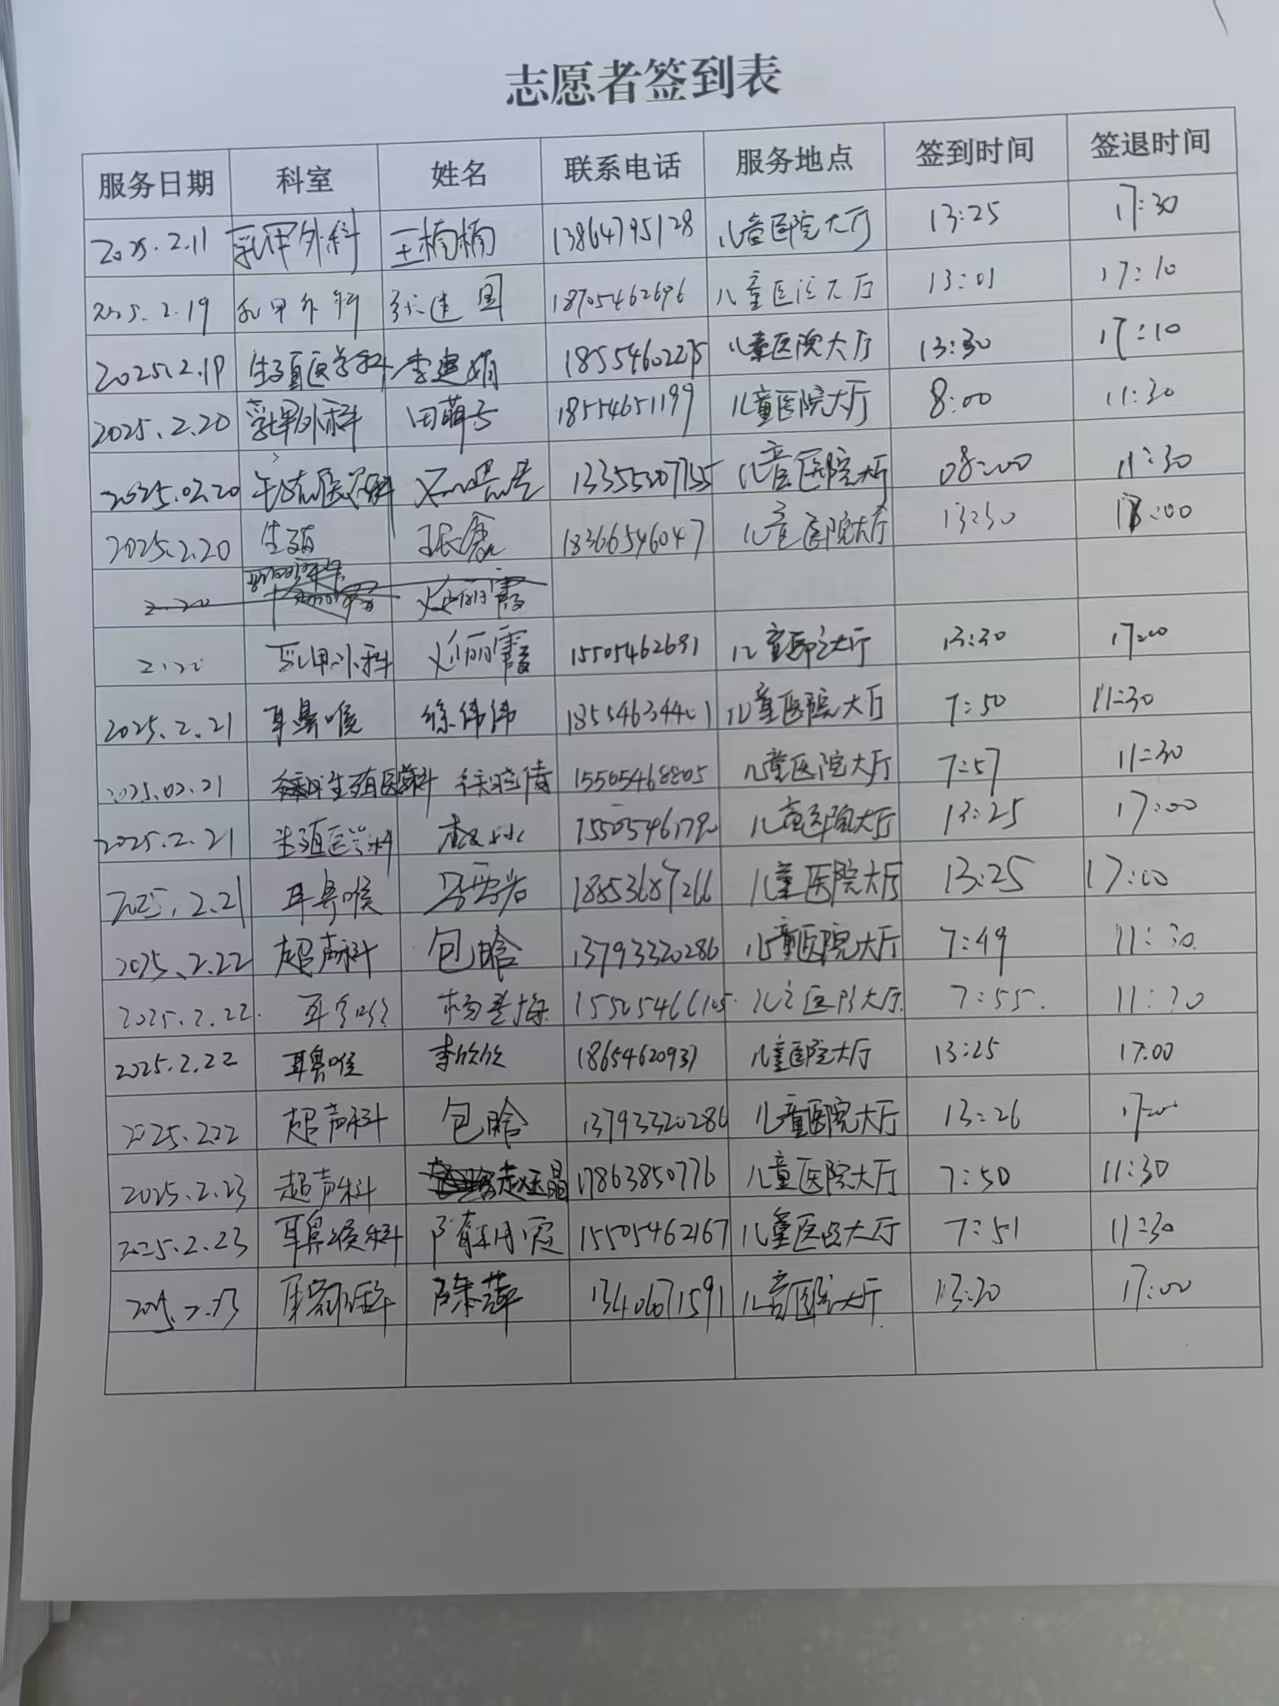 志愿者签到表
服务日期 科室 姓名 联系电话 服务地点 签到时间 签退时间
2025.2.11 乳甲外科 王楠楠 13864795128 儿童医院大厅 13:25 17:30
2025.2.19 乳甲外科 张建国 18705462696 儿童医院大厅 13:01 17:10
2025.2.19 生殖医学科 李建娟 18554602275 儿童医院大厅 13:30 17:10
2025.2.20 乳甲外科 田萌子 18554651199 儿童医院大厅 8:00 11:30
2025.02.20 生殖医学科 13355207755 儿童医院大厅 08:00 11:30
2025.2.20 生殖 张鑫 18366546047 儿童医院大厅 13:30 17:00
2.20 赵丽霞
2.20 乳甲外科 赵丽霞 15505462691 儿童医院大厅 13:30 17:00
2025.2.21 耳鼻喉 徐伟伟 18554634401 儿童医院大厅 7:50 11:30
2025.02.21 生殖医学科 徐晓倩 15505468805 儿童医院大厅 7:57 11:30
2025.2.21 生殖医学科 儿童医院大厅 13:25 17:00
2025.2.21 耳鼻喉 18853687266 儿童医院大厅 13:25 17:00
2025.2.22 超声科 包晗 13793320286 儿童医院大厅 7:49 11:30
2025.2.22. 耳鼻喉 儿童医院大厅. 7:55. 11:30
2025.2.22 耳鼻喉 李欣欣 1865462093 儿童医院大厅 13:25 17:00
2025.2.22 超声科 包晗 13793320286 儿童医院大厅 13:26 17:00
2025.2.23 超声科 17863850776 儿童医院大厅 7:50 11:30
2025.2.23 耳鼻喉科 隋明霞 15505462167 儿童医院大厅 7:51 11:30
2025.2.23 耳鼻喉科 陈萍 13406071591 儿童医院大厅 13:20 17:00